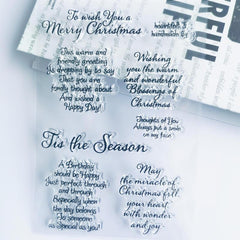 To wish You a
Merry Christmas
This warm and
friendly greeting
Is dropping by to say
That you are
fondly thought about
And wished a
Happy Day!
Wishing
you the warm
and wonderful
Blessings of
Christmas
Thoughts of You
Always put a smile
on my face
Tis the Season
A Birthday
should be Happy
Just perfect through
and through
Especially when
the day belongs
To someone
as Special as you!
May
the miracle of
Christmas fill
your heart
with wonder
and joy